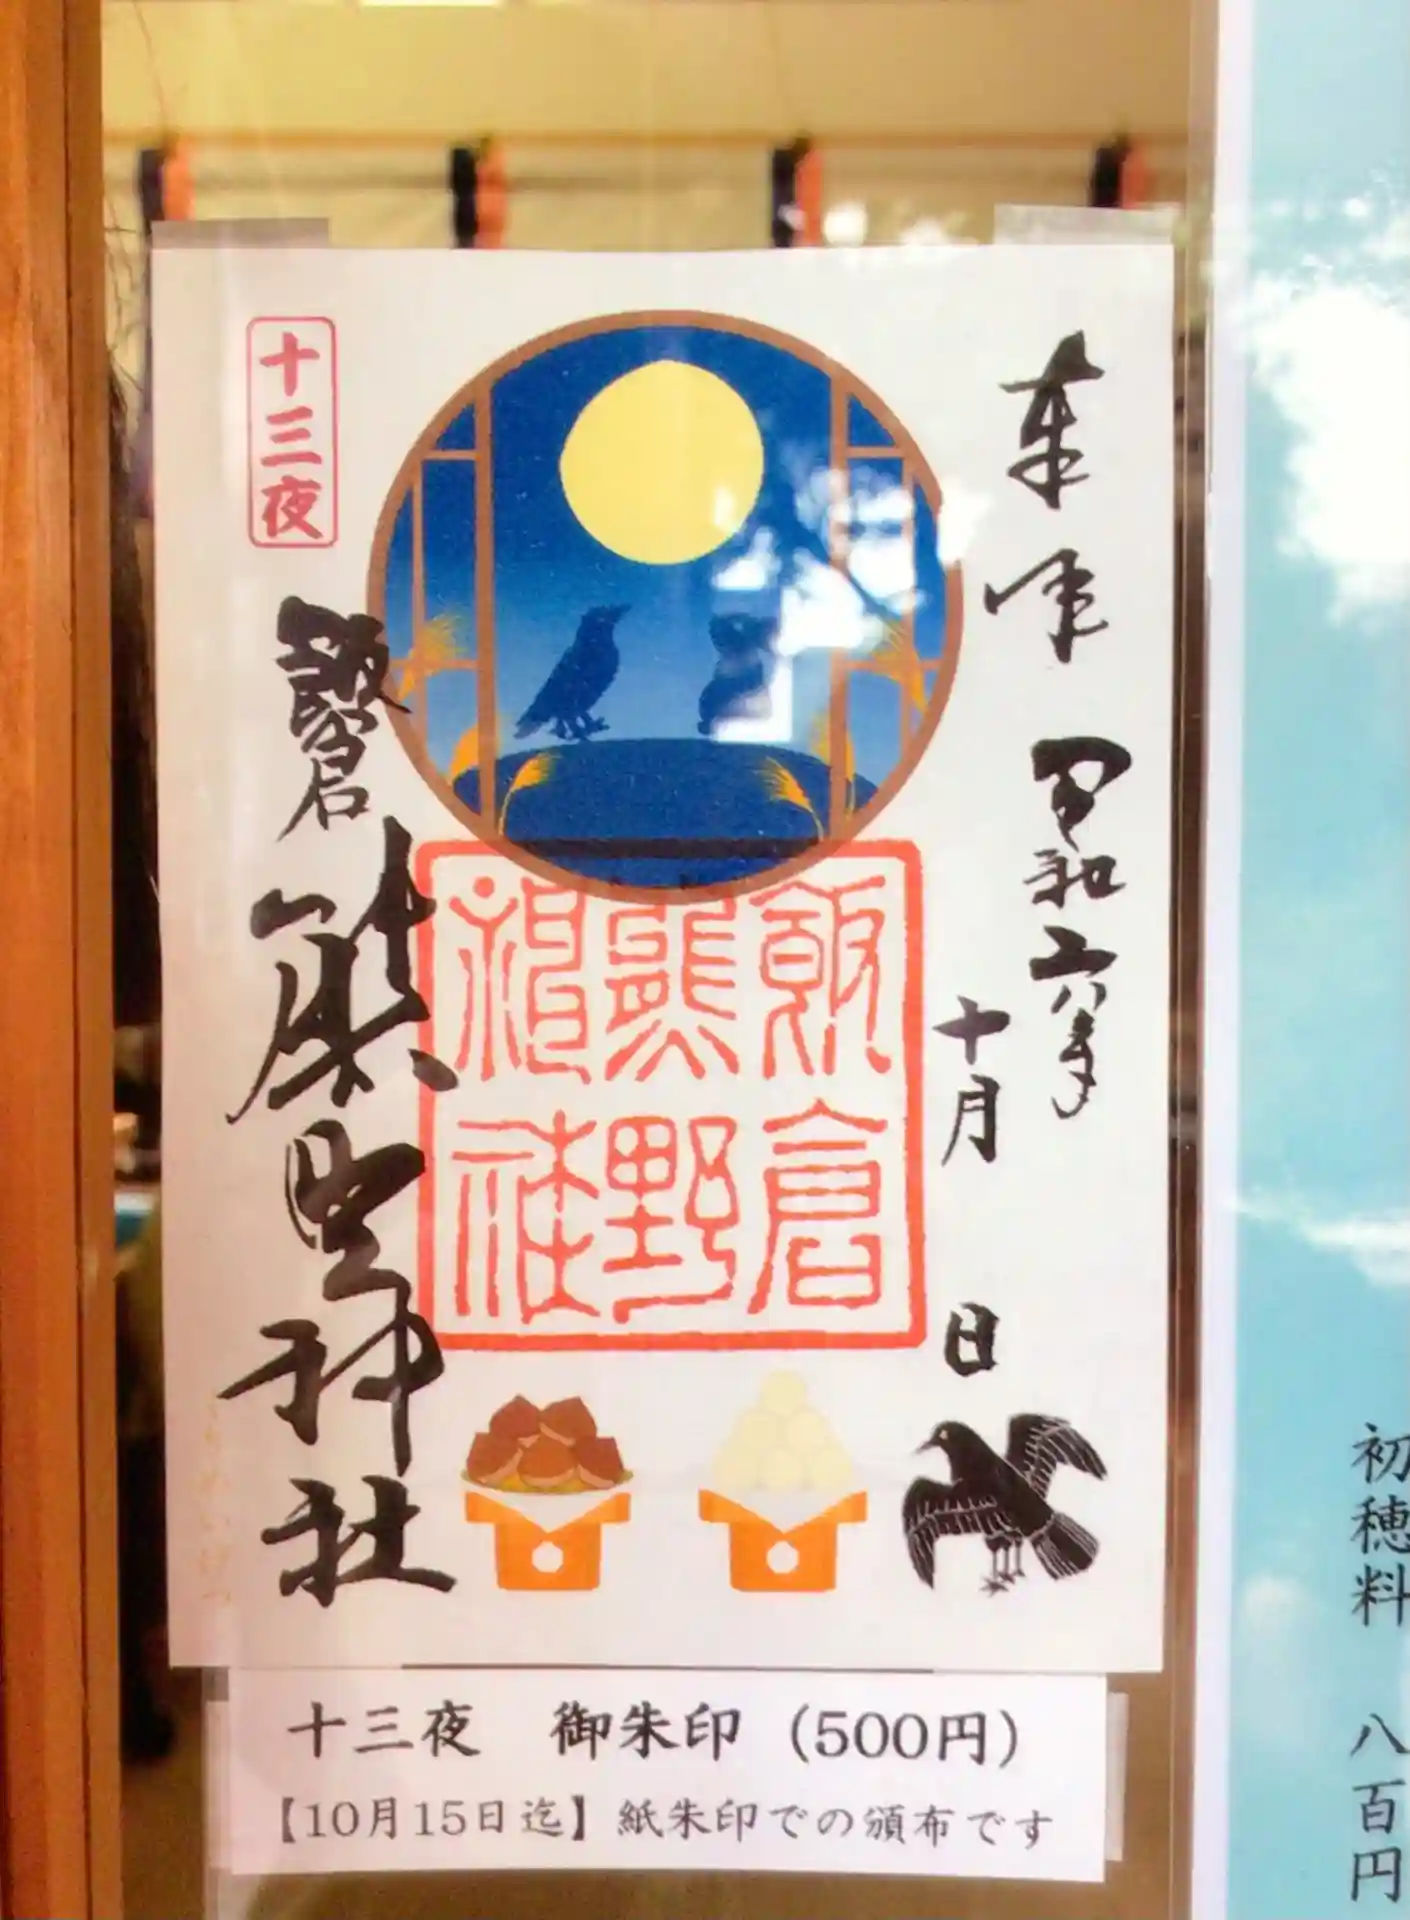 奉拝
令和六年
十月　日
十三夜
飯倉
熊野神社
飯倉
熊野
神社
十三夜　御朱印（500円）
【10月15日迄】紙朱印での頒布です
初穂料　八百円